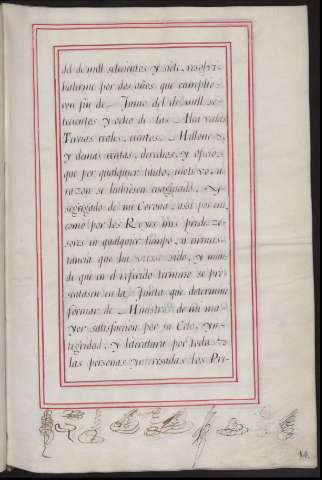 del de mill setecientos y siete, resolvi
valerme por dos años que cumplie-
ron fin de Junio del de mill se-
tecientos y ocho de las Alcavalas
Tercias reales, cientos, Millones,
y demas rentas, derechos, y oficios
que por qualquier titulo, motivo, u
razon se hubiesen enagenado, y
segregado de mi Corona, assi por mi
como por los Reyes mis predeze-
sores en qualquier tiempo, u circuns-
tancia que hubiesse sido, y man-
de que en el referido termino se pre-
sentasen en la Junta que determine
formar de Ministros de mi ma-
yor satisfacion por su Celo, yn-
tegridad, y literatura por todas
las personas ynteresadas los Pri-